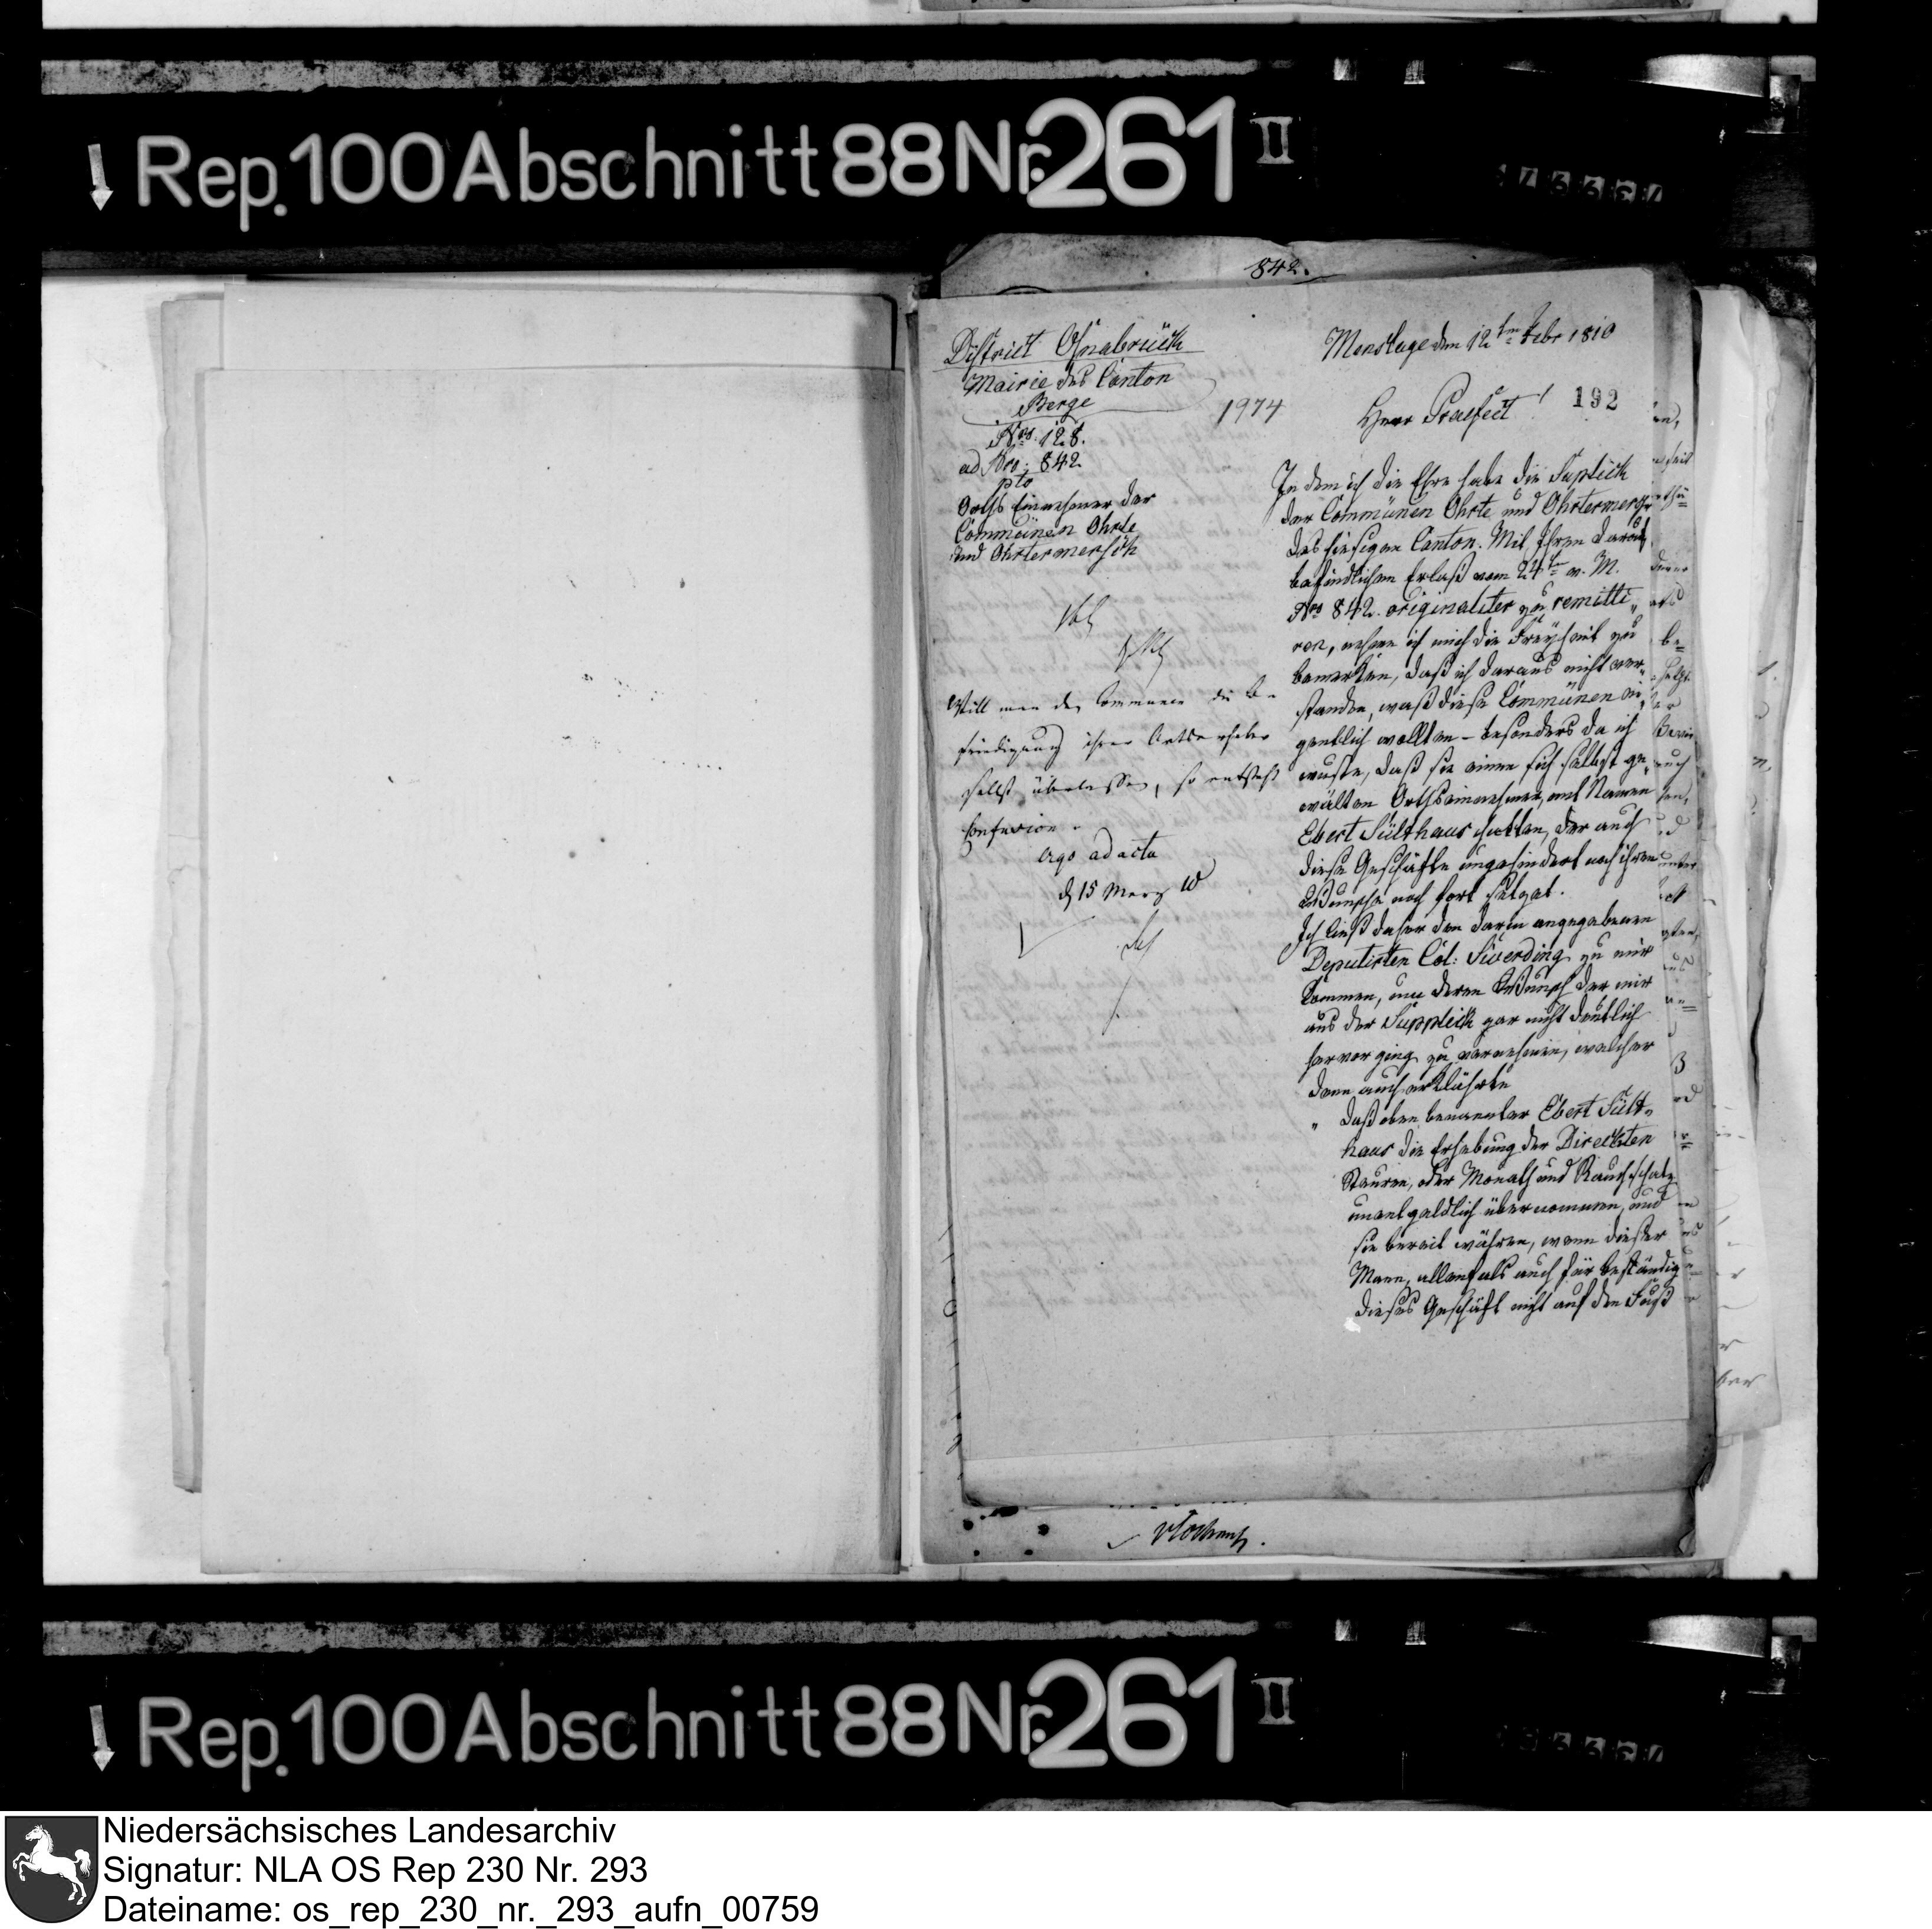 Rep. 100 Abschnitt 88 Nr. 261 II
842.
District Osnabrück
Mairie des Canton
Berge
Nro. 128.
ad Nro: 842
pto
Orths Einnehmer der
Communen Ohrte
und Ohrtermersch
Will man den Communen die Be-
friedigung ihrer Ortserheber
selbst überlassen, so entsteht
Confusion.
ergo ad acta
d 15 Merz 10
1974
Menslage den 12ten Febr 1810
Herr Praefect!
192
In dem ich die Ehre habe die Suplick
der Communen Ohrte und Ohrtermersch
des hiesigen Canton. Mit Ihren darauf
befindlichen Erlaß vom 24ten v. M.
Nro 842. originaliter zu remitti„
ren, nehme ich mich die Freyheit zu
bemerken, daß ich daraus nicht ver„
standen, waß diese Communen ei„
gentlich wollten – besonders da ich
wuste, daß sie einen sich selbst ge„
wälten Orthseinnehmer, mit Namen
Ebert Sülthaus hatten, der auch
diese Geschäfte ungehindert nach ihren
Wunsche noch fort setzet.
Ich ließ daher den darin angegebenen
Deputirten Col: Siverding zu mir
kommen, um deren Wunsch der mir
aus der Supplick gar nicht deutlich
hervor ging zu vernehmen, welcher
dann auch erklährte
„ daß oben benannter Ebert Sült„
haus die Erhebung der Direckten
Steuren, oder Monath und Rauchschatz
unentgeldlich übernommen, und
sie bereit währen, wenn dieser
Mann, allenfals auch für beständig
dieses Geschäft nicht auf den Fuß
Rep. 100 Abschnitt 88 Nr. 261 II
Niedersächsisches Landesarchiv
Signatur: NLA OS Rep 230 Nr. 293
Dateiname: os_rep_230_nr._293_aufn_00759